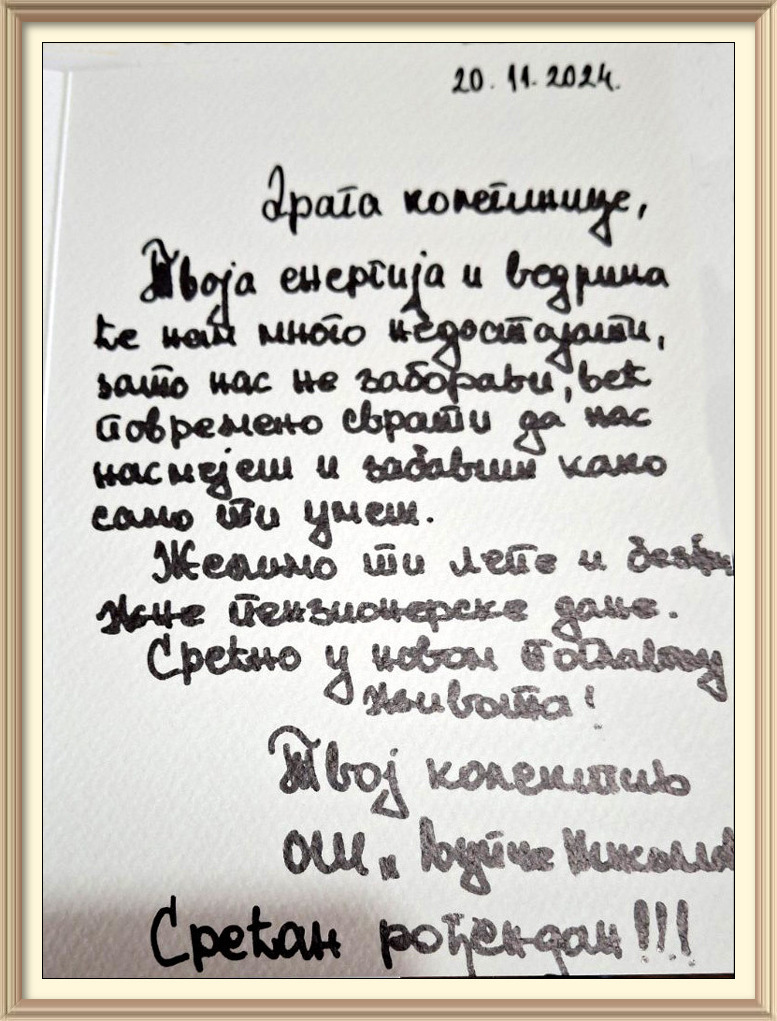 20. 11. 2024.
Драга колегинице,
Твоја енергија и ведрина
ће нам много недостајати,
зато нас не заборави, већ
повремено сврати да нас
насмејеш и забавиш како
само ти умеш.
Желимо ти лепе и безбри
жне пензионерске дане.
Срећно у новом поглављу
живота!
Твој колектив
ОШ
Срећан рођендан!!!